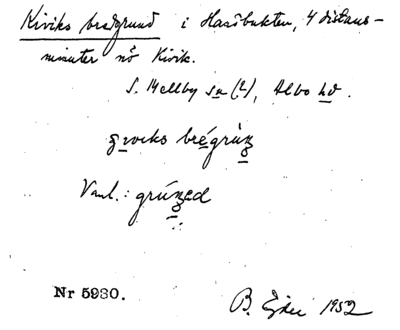 Kiviks bredgrund i Hanöbukten, 4 distans-
minuter nö Kivik.
S. Mellby sn (?), Albo hd.
bregrúnd
Vanl.: grúnd
Nr 5980.
B. Ejder 1952